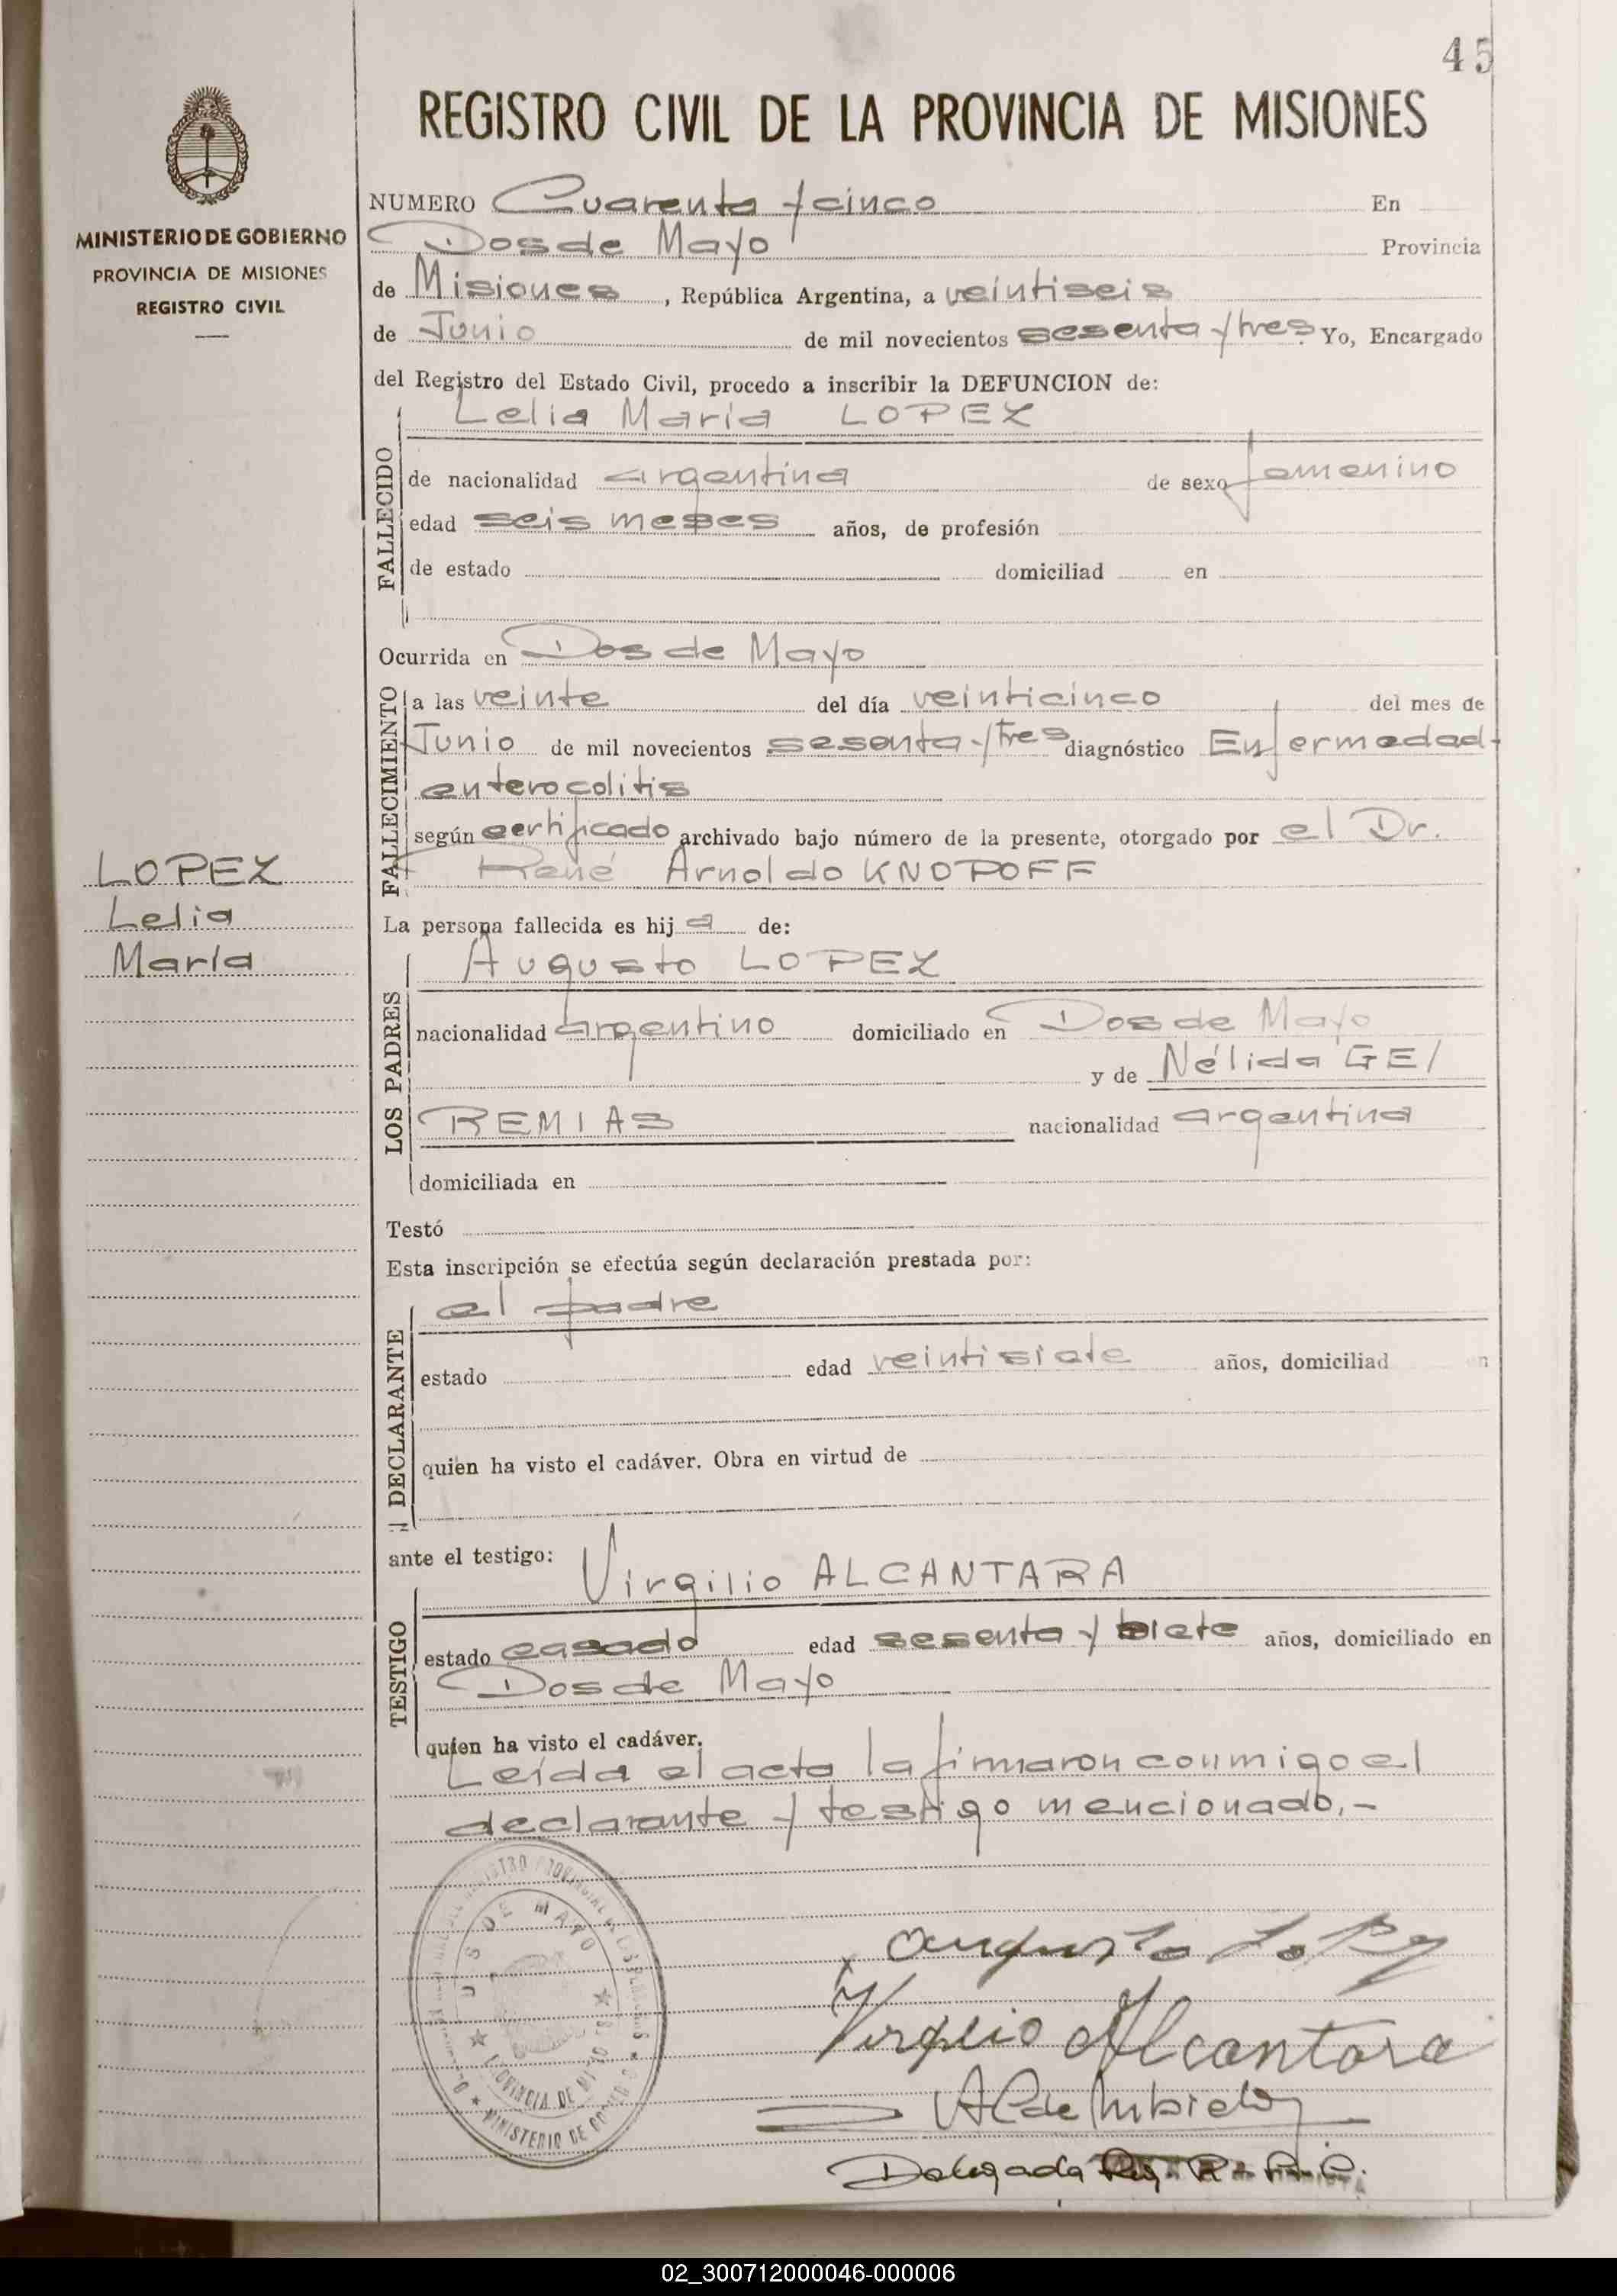 45
REGISTRO CIVIL DE LA PROVINCIA DE MISIONES
MINISTERIO DE GOBIERNO
PROVINCIA DE MISIONES
REGISTRO CIVIL
NUMERO Cuarenta y cinco En
Dos de Mayo Provincia
de Misiones, República Argentina, a veintiseis
de Junio de mil novecientos sesenta y tres Yo, Encargado
del Registro del Estado Civil, procedo a inscribir la DEFUNCION de:
Lelia María LOPEZ
FALLECIDO
de nacionalidad argentina de sexo femenino
edad seis meses años, de profesión
de estado domiciliad en
Ocurrida en Dos de Mayo
FALLECIMIENTO
a las veinte del día veinticinco del mes de
Junio de mil novecientos sesenta y tres diagnóstico Enfermedad-
enterocolitis
según certificado archivado bajo número de la presente, otorgado por el Dr.
René Arnoldo KNOPOFF
LOPEZ
Lelia
María
La persona fallecida es hija de:
Augusto LOPEZ
LOS PADRES
nacionalidad argentino domiciliado en Dos de Mayo
y de Nélida GE/
REMIAS nacionalidad argentina
domiciliada en
Testó
Esta inscripción se efectúa según declaración prestada por:
el padre
DECLARANTE
estado edad veintisiete años, domiciliad en
quien ha visto el cadáver. Obra en virtud de
ante el testigo: Virgilio ALCANTARA
TESTIGO
estado casado edad sesenta y siete años, domiciliado en
Dos de Mayo
quien ha visto el cadáver.
Leída el acta la firmaron conmigo el
declarante y testigo mencionado.-
Augusto Lopez
Virgilio Alcantara
DOS DE MAYO
PROVINCIA DE MISIONES
MINISTERIO DE GOBIERNO
Delegada
02_300712000046-000006